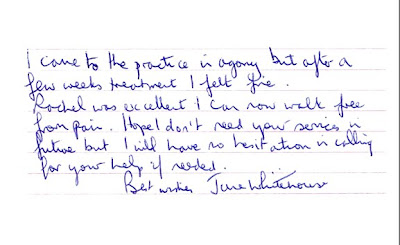 I came to the practice in agony but after a
few weeks treatment I felt fine.
Rachel was excellent I can now walk free
from pain. Hope I don't need your services in
future but I will have no hesitation in calling
for your help if needed.
Best wishes June Whitehouse